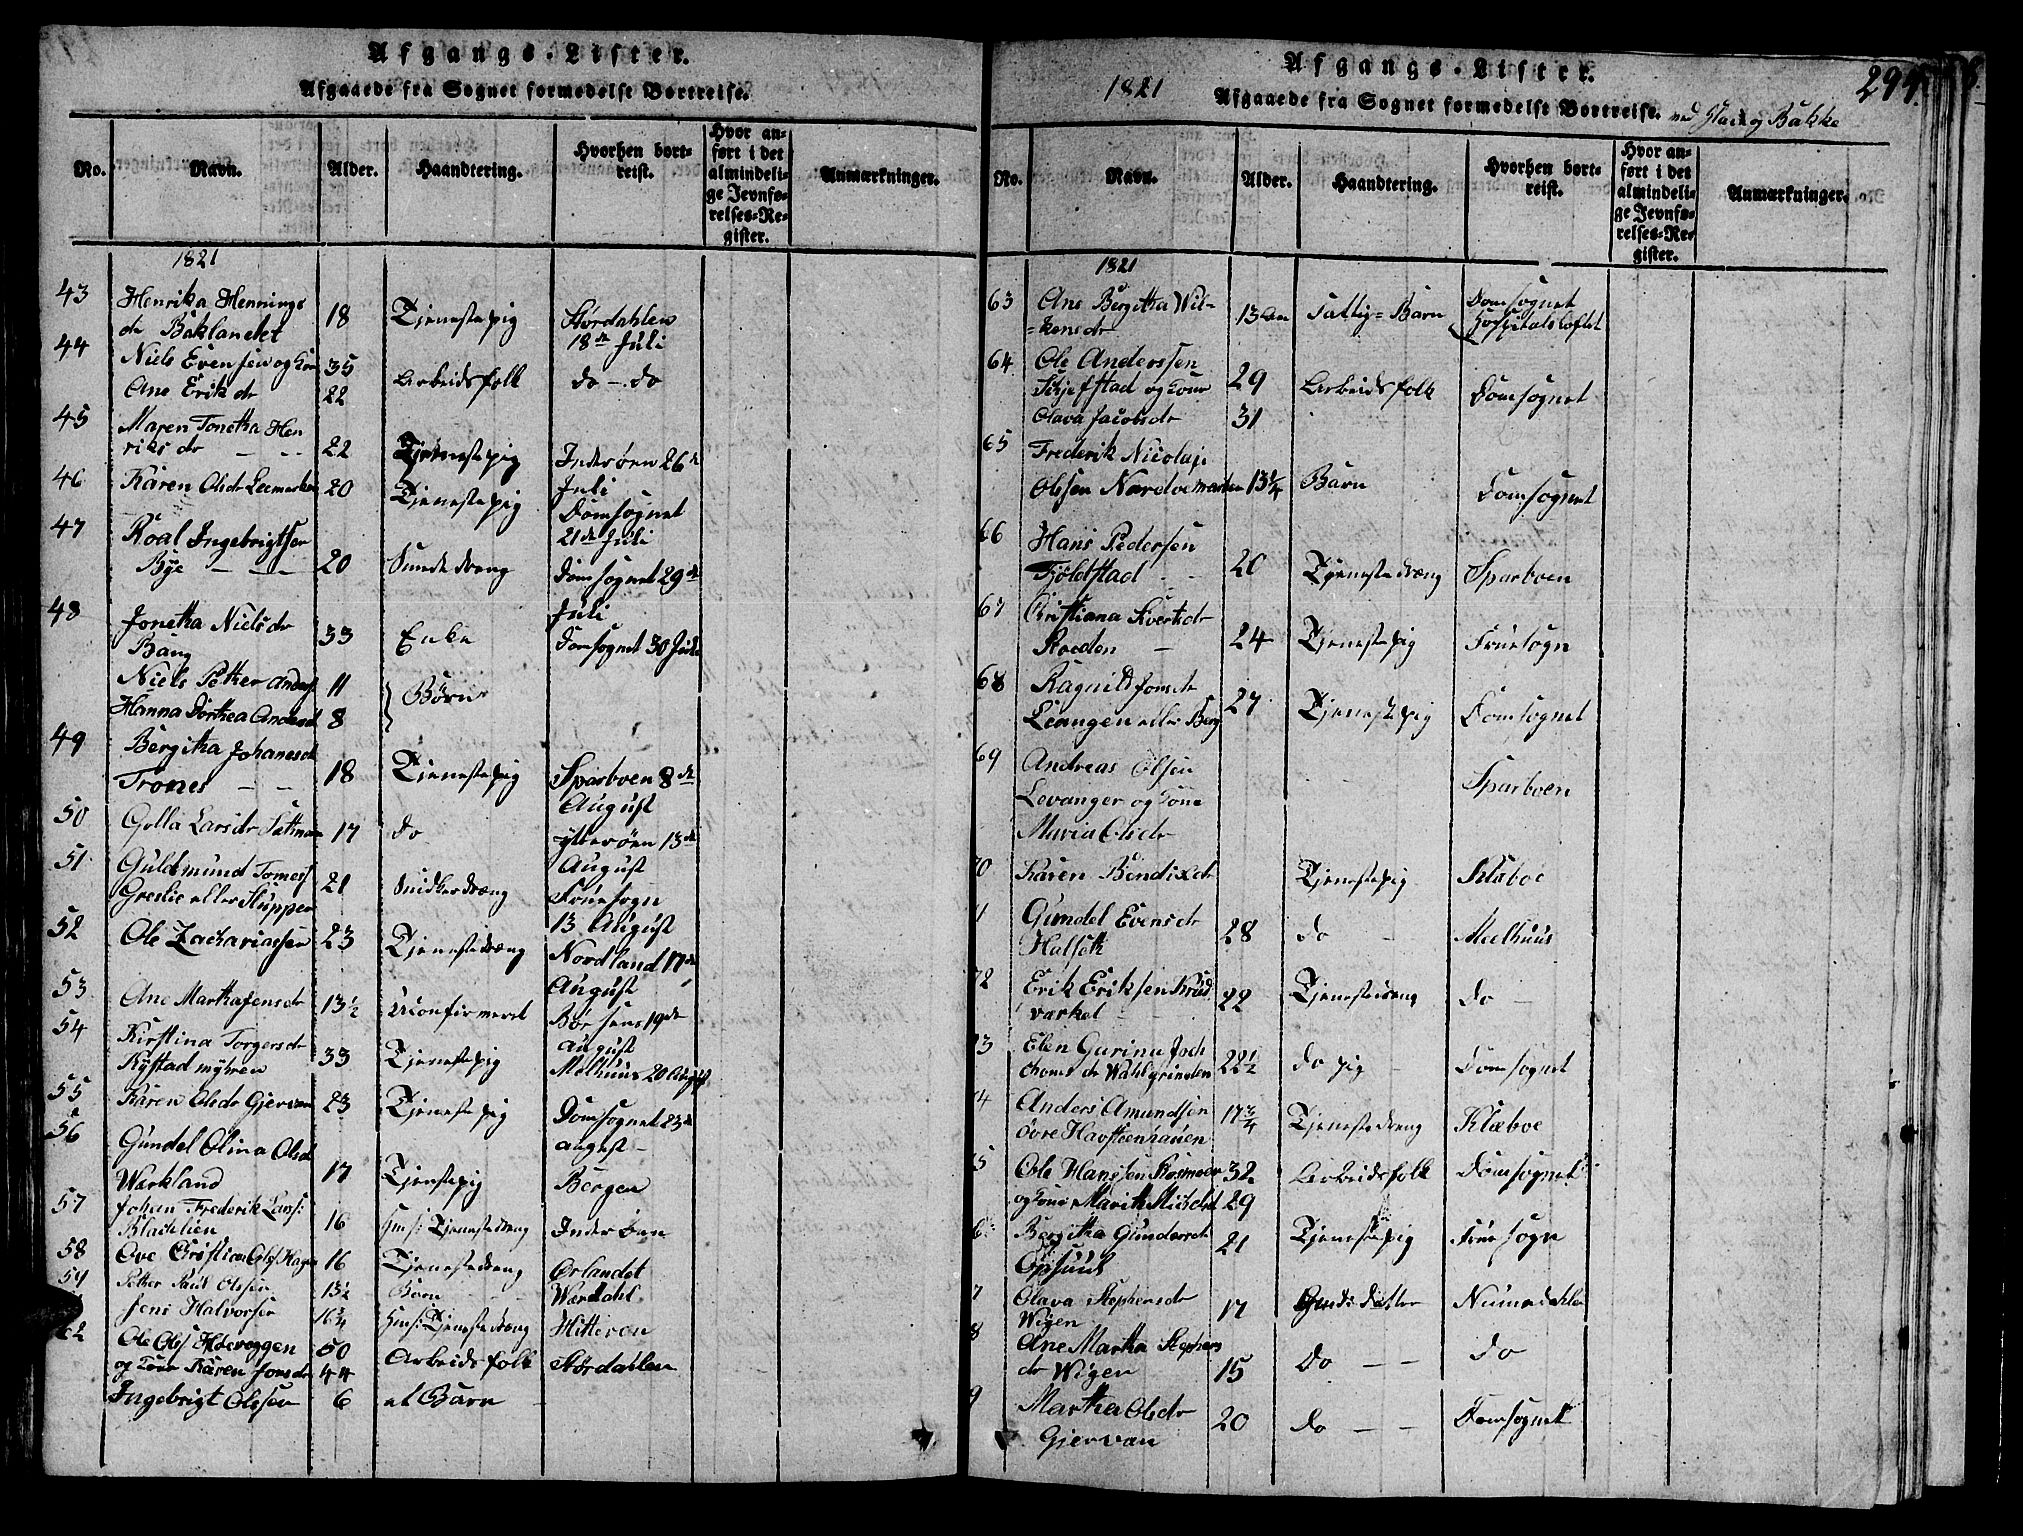 Afgangs-Lister.
Afgaaede fra Sognet formedelst Bortreise.
No. Navn. Alder. Haandtering. Hvorhen bortreist. Hvor anført i det almindelige Jevnførelses-Register. Anmærkninger.
1821
43 Henrika Hennings
dr Baklandet 18 Tjenestepig Størdahlen
18de Juli
44 Niels Evensen og Kone 35
Ane Erikdr 22 Arbeidsfolk do - do
45 Maren Tonetha Hen
riksdr 22 Tjenestepig Inderøen 26de
Juli
46 Karen Olsdr 20 Tjenestepig Domsognet
21de Juli
47 Roal Ingebrigtsen
Bye 20 Domsognet 29de
Juli
48 Jonetha Nielsdr
Bang 33 Enke Domsognet 30 Juli
Niels Petter Anders 11
Hanna Dorthea Andersd 8 Børn
49 Bergitha Johanesdr
Trones 18 Tjenestepig Sparboen 8de
August
50 Golla Larsdr 17 do Ytterøen 13de
August
51 Guldmund Tomess
Greslie eller Sluppen 21 Snidkerdræng Frue sogn
13 August
52 Ole Zachariassen 23 Tjenestedræng Nordland 17de
August
53 Ane Martha Jensdr 13½ Uconfirmeret Børsens 19de
August
54 Kirstina Torgersdr
Rystad myhren 33 Tjenestepig Melhuus 20 August
55 Karen Olsdr Gjervan 23 Tjenestepig Domsognet 23de
August
56 Gundel Olina Olsd
Wirkland 17 Tjenstepig Bergen
57 Johan Frederik Larss:
Blachlien 16 Tjenstedreng Inderøen
58 Ove Cristian Ols Hagen 16 Tjenestedreng Ørlandet
59 Petter Paul Olsen 13½ Børn Wærdahl
Jens Halvorsen 16¾ Tjenestedreng Hitteroen
62 Ole Ols 50
og Kone Karen Jonsdr 44 Arbeidsfolk Størdahlen
Ingebrigt Olssen 6 et Barn
Afgangs-Lister.
294.
1821 Afgaaede fra Sognet formedelst Bortreise. ved og Bakke
No. Navn. Alder. Haandtering. Hvorhen bortreist. Hvor anført i det almindelige Jevnførelses-Register. Anmærkninger.
1821
63 Ane Bergitha Wil-
=kensdr 13 Fattig=Barn Domsognet
Hospitalsloftet
64 Ole Anderssen
Skjefstad og Kone 29 Arbeidsfolk Domsognet
Olava Jacobsdr 31
65 Frederik Nicolaje
Olssen 13¼ Barn Domsognet
66 Hans Pedersen
Fjøldstad 20 Tjenestedræng Sparboen
67 Cristiana Sivertsdr
Roeden 24 Tjenestepig Frue sogn
68 Ragnild Jonsdr
Leangen eller Berg 27 Tjenestepig Domsognet
69 Andreas Olsen
Levanger og Kone Sparboen
Maria Olsdr
70 Karen Bendixdr Tjenestepig Klæboe
1 Gundel Evensdr
Halseth 28 do Meelhuus
72 Erik Eriksen Krud
værket 22 Tjenestedreng do
73 Elen Gurina Joch
choms dr Wahlgrinden 22½ do pig Domsognet
4 Anders Amundsen
Øvre Havsteenhauen 17¾ Tjenestedreng Klæboe
5 Ole Hanssen 32 Arbeidsfolk Domsognet
og Kone Marith Nielsdt 29
6 Bergitha Gundersdr
Opsuul 21 Tjenestepig Frue sogn
7 Olava Stephensdr
Wigen 17 Gmds Datter Numedahlen
8 Ane Martha Stephens
dr Wigen 15 Do do
9 Martha Olsdr
Gjervan 20 Do Domsognet